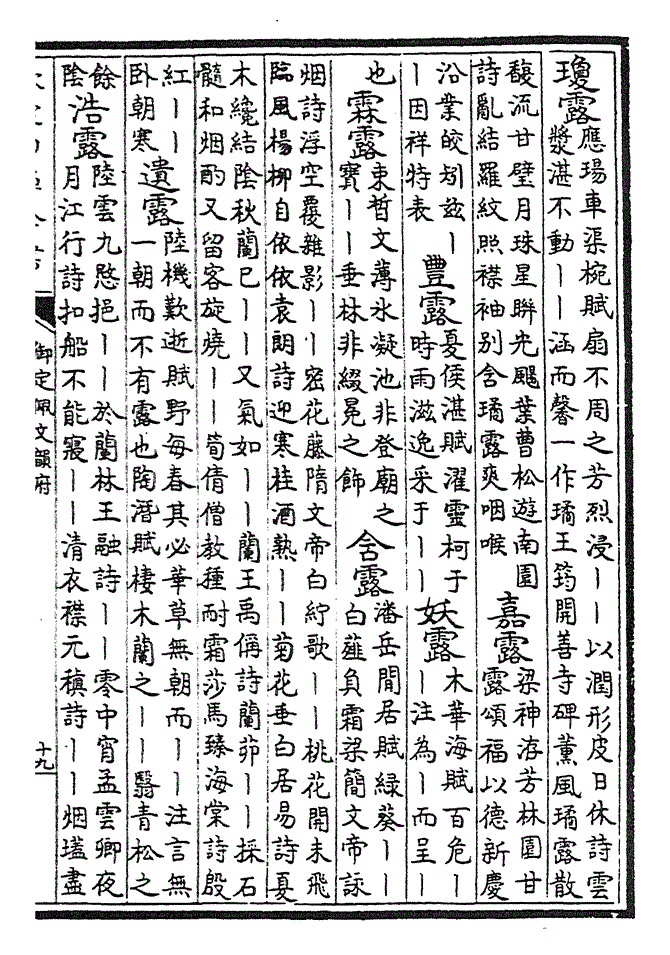 瓊露應瑒車渠椀賦扇不周之芳烈浸丨丨以潤形皮日休詩雲
漿湛不動丨丨涵而馨一作璚王筠開善寺碑薰風璚露散
馥流甘璧月珠星聯光颺葉曹松遊南園
詩亂結羅紋照襟袖別含璚露爽咽喉
嘉露梁神洊芳林園甘
露頌福以德新慶
沿業皎矧兹丨
丨因祥特表
豐露夏侯湛賦濯靈柯于
時雨滋逸采于丨丨
妖露木華海賦百危丨
丨注為丨而呈丨
也
霖露束晳文薄氷凝池非登廟之
寳丨丨垂林非綴冕之飾
含露潘岳閒居賦緑葵丨丨
白薤負霜梁簡文帝詠
烟詩浮空覆雜影丨丨密花藤隋文帝白紵歌丨丨桃花開未飛
臨風楊柳自依依袁朗詩迎寒桂酒熟丨丨菊花垂白居易詩夏
木纔結陰秋蘭巳丨丨又氣如丨丨蘭王禹偁詩蘭茆丨丨採石
髓和烟酌又留客旋燒丨丨筍倩僧教種耐霜莎馬臻海棠詩殷
紅丨丨
卧朝寒
遺露陸機歎逝賦野每春其必華草無朝而丨丨注言無
一朝而不有露也陶潛賦棲木蘭之丨丨翳青松之
餘
陰
浩露陸雲九愍挹丨丨於蘭林王融詩丨丨零中宵孟雲卿夜
月江行詩扣船不能寢丨丨清衣襟元稹詩丨丨烟壒盡
御定佩文韻府
十九